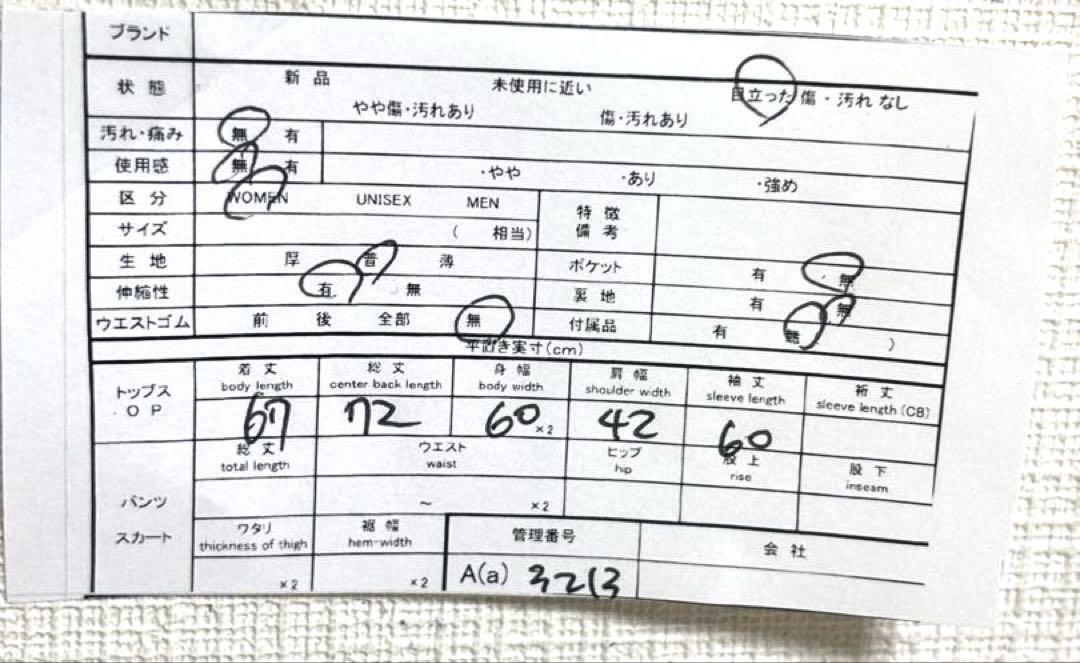 ブランド
状態 新品 未使用に近い 目立った傷・汚れなし
やや傷・汚れあり 傷・汚れあり
汚れ・痛み 無 有
使用感 無 有 ・やや ・あり ・強め
区分 WOMEN UNISEX MEN 特徴
サイズ ( 相当) 備考
生地 厚 普 薄 ポケット 有 無
伸縮性 有 無 裏地 有 無
ウエストゴム 前 後 全部 無 付属品 有 無 )
平置き実寸(cm)
着丈 総丈 身幅 肩幅 袖丈 裄丈
トップス body length center back length body width shoulder width sleeve length sleeve length (CB)
OP 67 72 60 ×2 42 60
総丈 ウエスト ヒップ 股上 股下
total length waist hip rise inseam
パンツ ~ ×2
スカート ワタリ 裾幅 管理番号 会社
thickness of thigh hem-width
×2 ×2 A(a) 3213